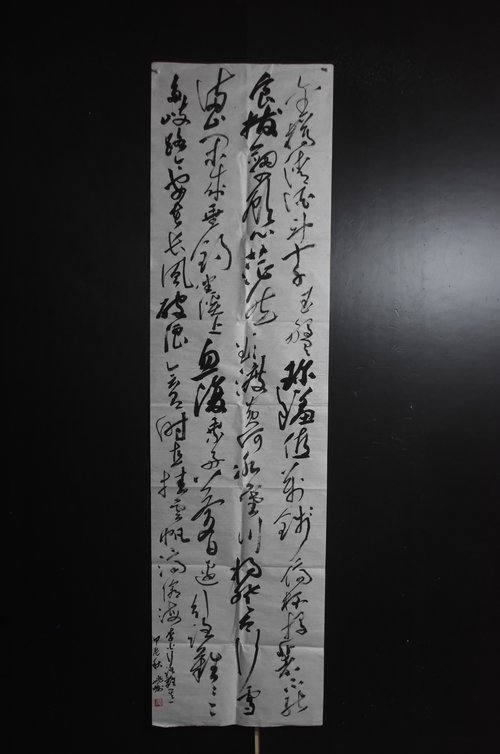 金樽清酒斗十千玉盤珍羞值萬錢停杯投箸不能
食拔劍四顧心茫然欲渡黃河冰塞川將登太行雪
滿山閑來垂釣溪上忽復乘舟夢日邊行路難
多歧路今安在長風破浪會有時直挂雲帆濟滄海李白行路難
秋